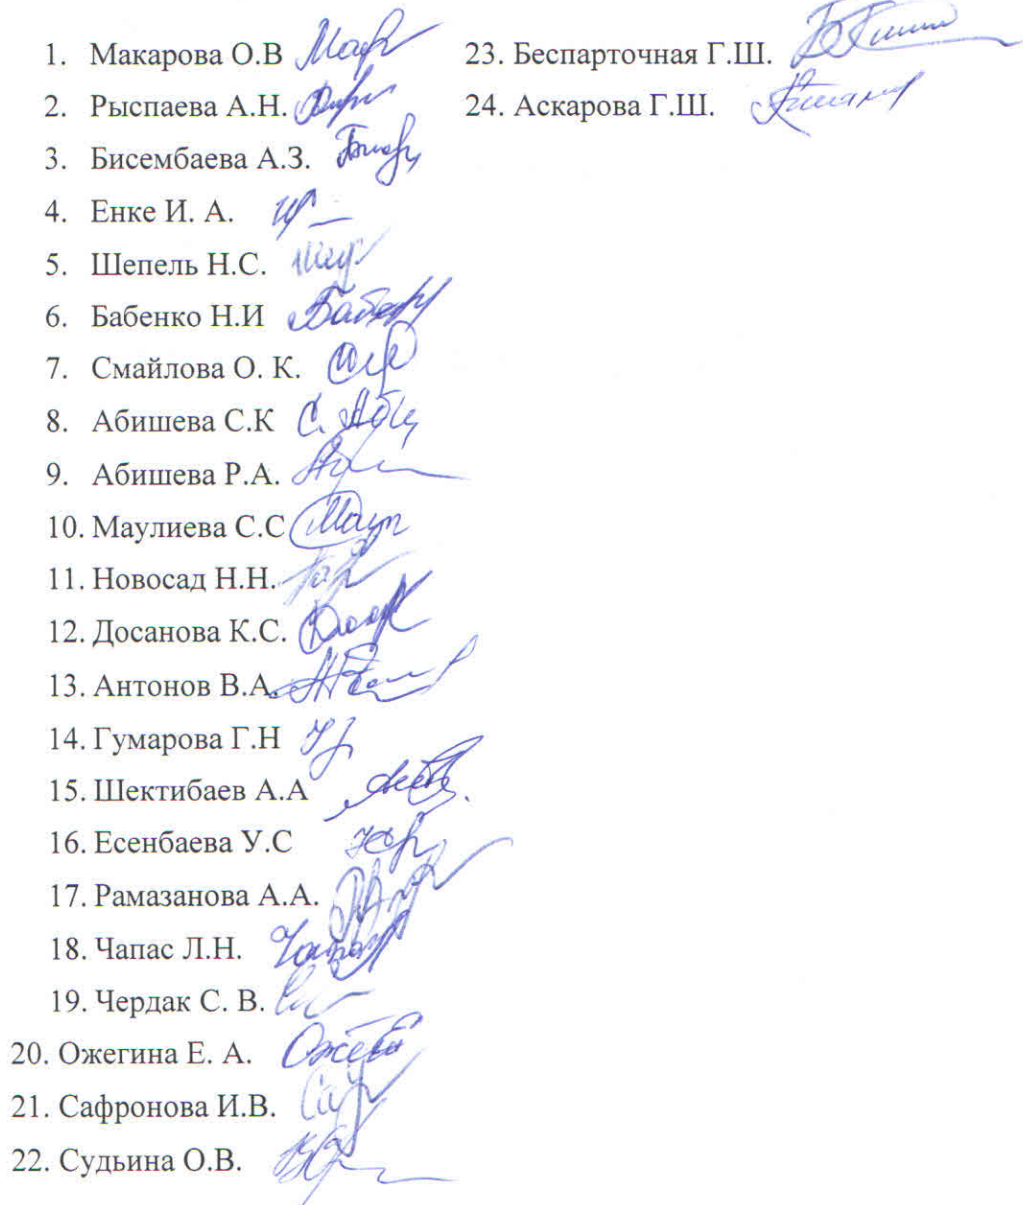 1. Макарова О.В
2. Рыспаева А.Н.
3. Бисембаева А.З.
4. Енке И. А.
5. Шепель Н.С.
6. Бабенко Н.И
7. Смайлова О. К.
8. Абишева С.К
9. Абишева Р.А.
10. Маулиева С.С
11. Новосад Н.Н.
12. Досанова К.С.
13. Антонов В.А.
14. Гумарова Г.Н
15. Шектибаев А.А
16. Есенбаева У.С
17. Рамазанова А.А.
18. Чапас Л.Н.
19. Чердак С. В.
20. Ожегина Е. А.
21. Сафронова И.В.
22. Судьина О.В.
23. Беспарточная Г.Ш.
24. Аскарова Г.Ш.